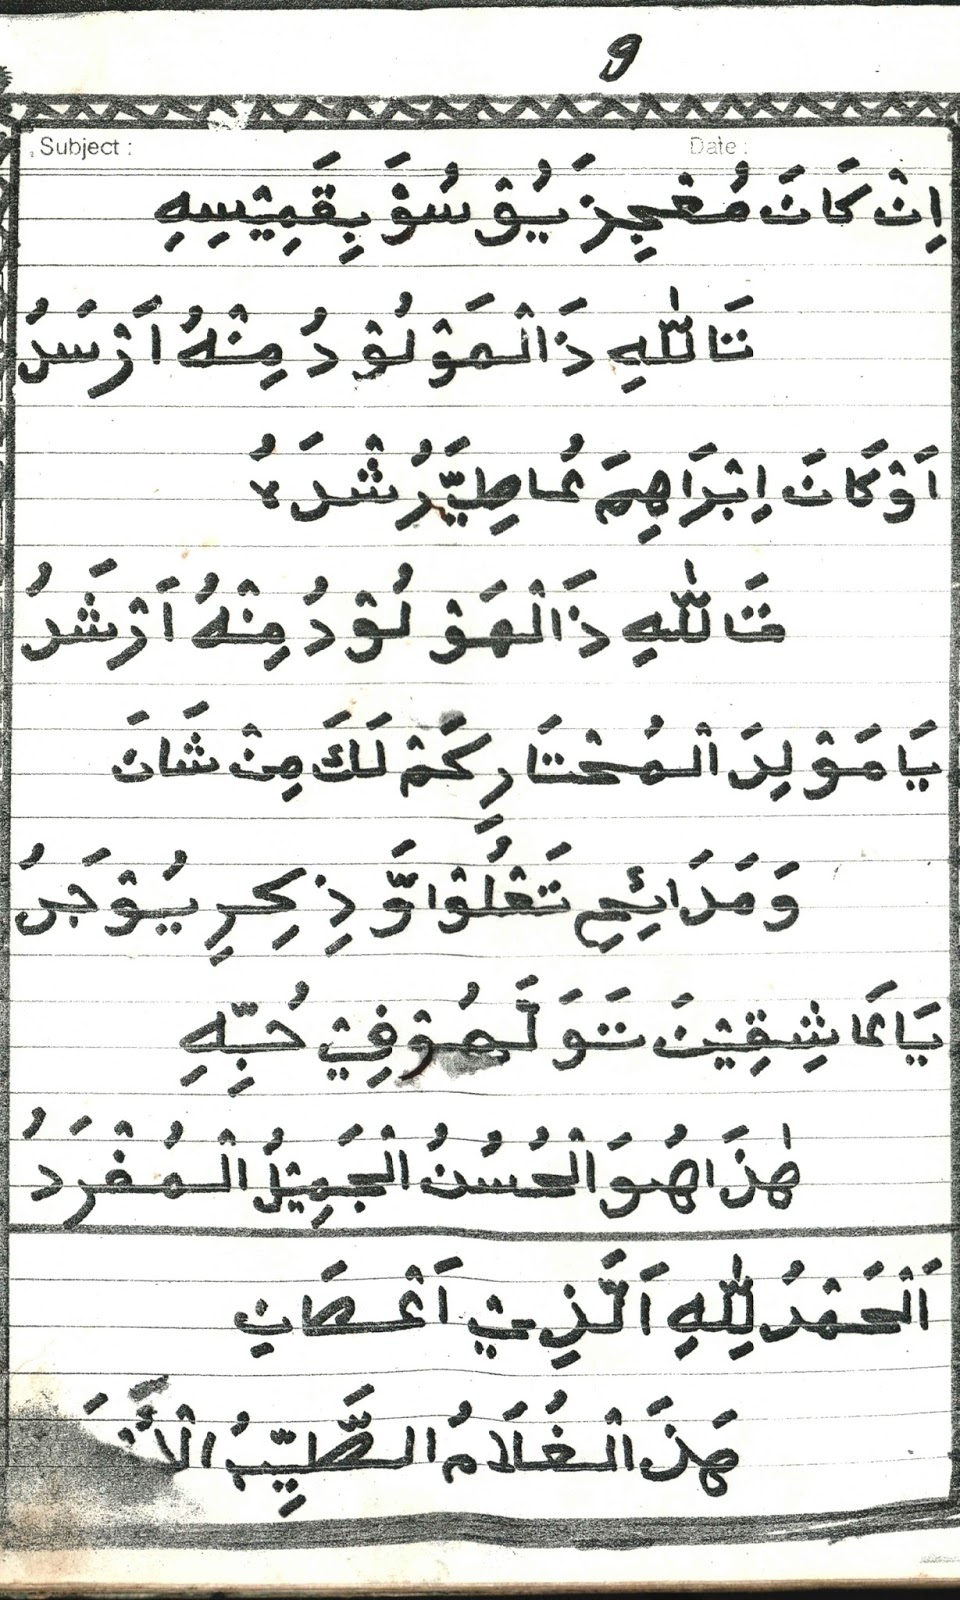 9
Subject : Date :
اِنْ كَانَ مُعْجِزَ يُوْ سُوْ بِقَمِيْسِهِ
تَاللّٰهِ ذَالْمَوْ لُوْ دُ مِنْهُ اَرْسَدُ
اَوْ كَانَ اِبْرَاهِمَ عُاطِيَّ رُشْدَهُ
تَاللّٰهِ ذَالْمَوْ لُوْ دُ مِنْهُ اَرْشَدُ
يَا مَوْ لِدَ الْمُخْتَارِ كَمْ لَكَ مِنْ شَانَ
وَمَدَائِحِ تَعْلُوْا وَّذِ كِرِ يُوْجَدُ
يَاعَاشِقِيْنَ تَوَ لَّهُوْ فِيْ حُبِّهِ
هٰذَاهُوَ الْحُسْنُ الْجَمِيْلُ الْمُفْرَدُ
اَلْحَمْدُ لِلّٰهِ اَلَّذِيْ اَعْطَانِ
هَذَ الْغُلَامُ الطَّيِّبُ